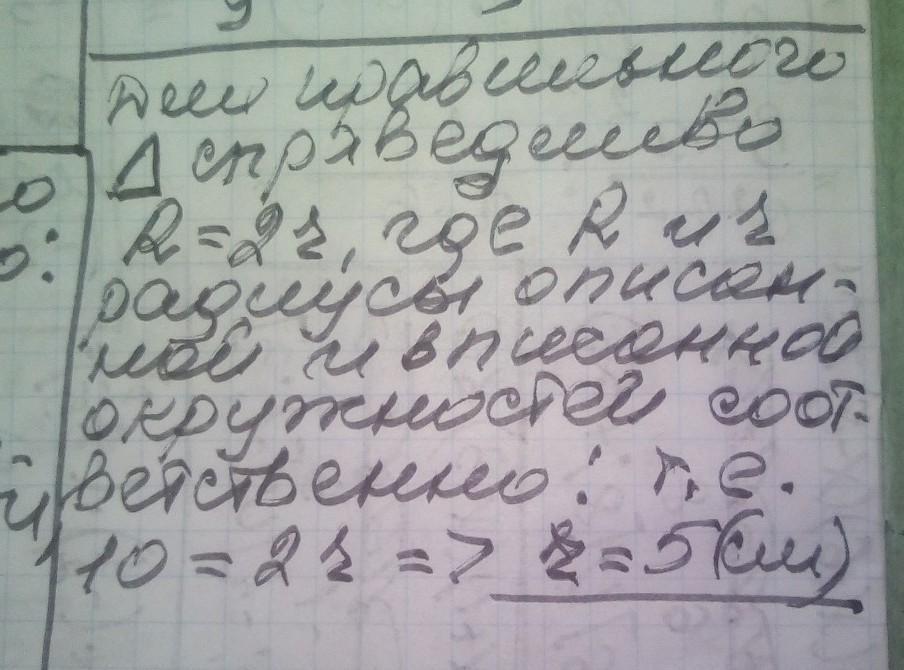 Для правильного
Δ справедливо
R = 2r, где R и r
радиусы описан-
ной и вписанной
окружностей соот-
ветственно: т.е.
10 = 2r => r = 5(см)